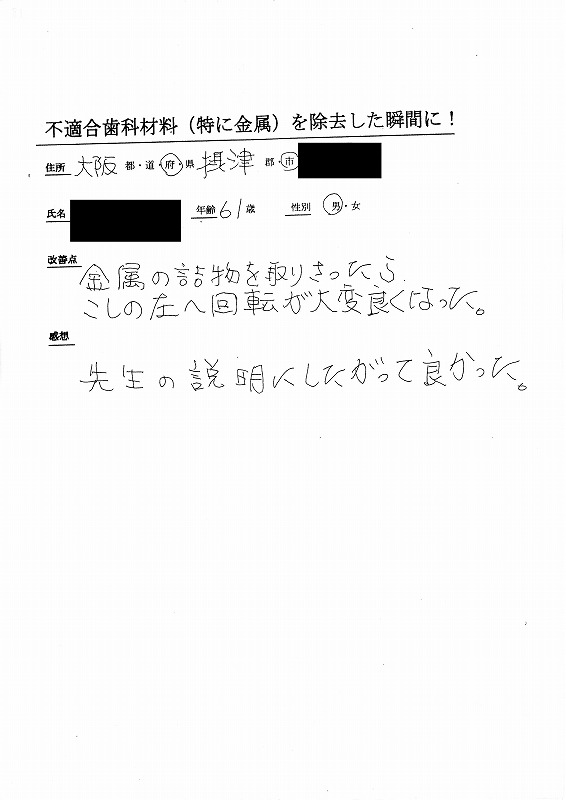 不適合歯科材料（特に金属）を除去した瞬間に！
住所 大阪 都・道・府・県 摂津 郡・市
氏名 年齢 61歳 性別 男・女
改善点
金属の詰物を取りさったら
こしの左へ回転が大変良くなった。
感想
先生の説明にしたがって良かった。